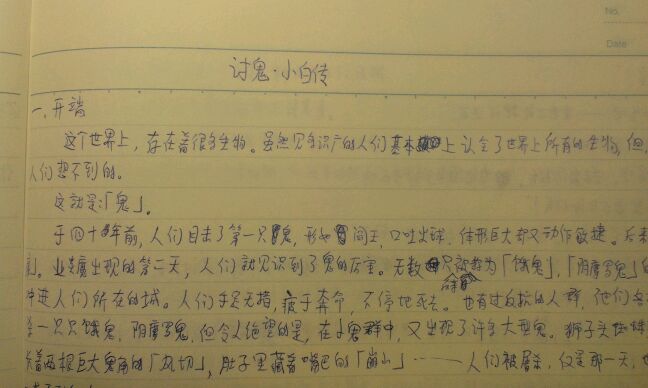 No.
Date
讨鬼·小白传
一、开端
这个世界上,存在着很多生物。虽然见多识广的人们基本上认全了世界上所有的生物,但
人们想不到的。
这就是「鬼」。
于四十年前,人们目击了第一只鬼,形如阎王,口吐出球,体形巨大却又动作敏捷。后来
出现的第二天,人们就见识到了鬼的厉害。无数只被称为「饿鬼」,「阴魔罗鬼」的
冲进人们所在的城。人们手足无措,疲于奔命,不停地死去。也有过反抗的人群,他们
一只只饿鬼,阴魔罗鬼,但令人绝望的是,在小鬼群中,又出现了许多大型鬼。狮子头
着两根巨大鬼角的「风切」,肚子里藏着嘴巴的「崩山」……人们被屠杀,仅是那一天,